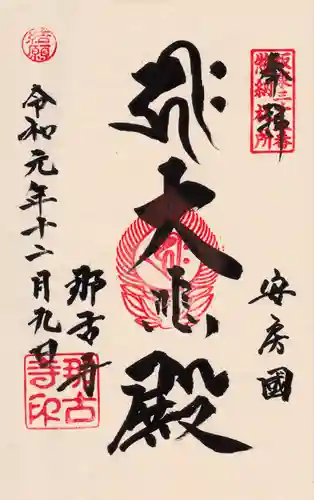 奉拝
坂東三十三番
納札所
安房國
大悲殿
那古寺
令和元年十二月九日
結願
那古寺印